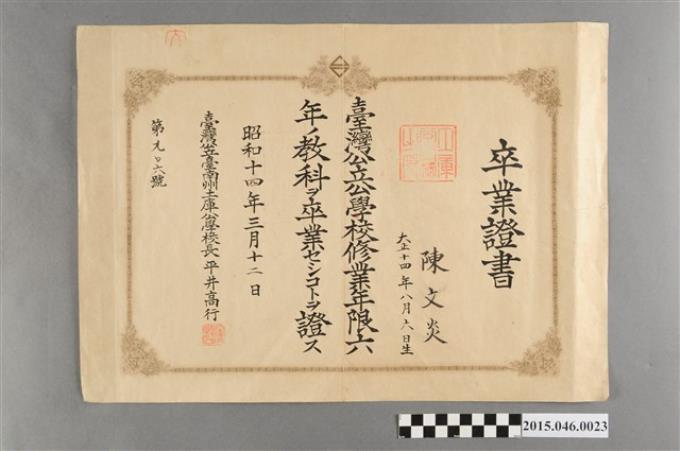 卒業證書
陳文炎
大正十四年八月六日生
臺灣公立公學校修業年限六
年ノ教科ヲ卒業セシコトヲ證ス
昭和十四年三月十二日
臺灣公立臺南州土庫公學校長平井高行
第九〇六號
2015.046.0023